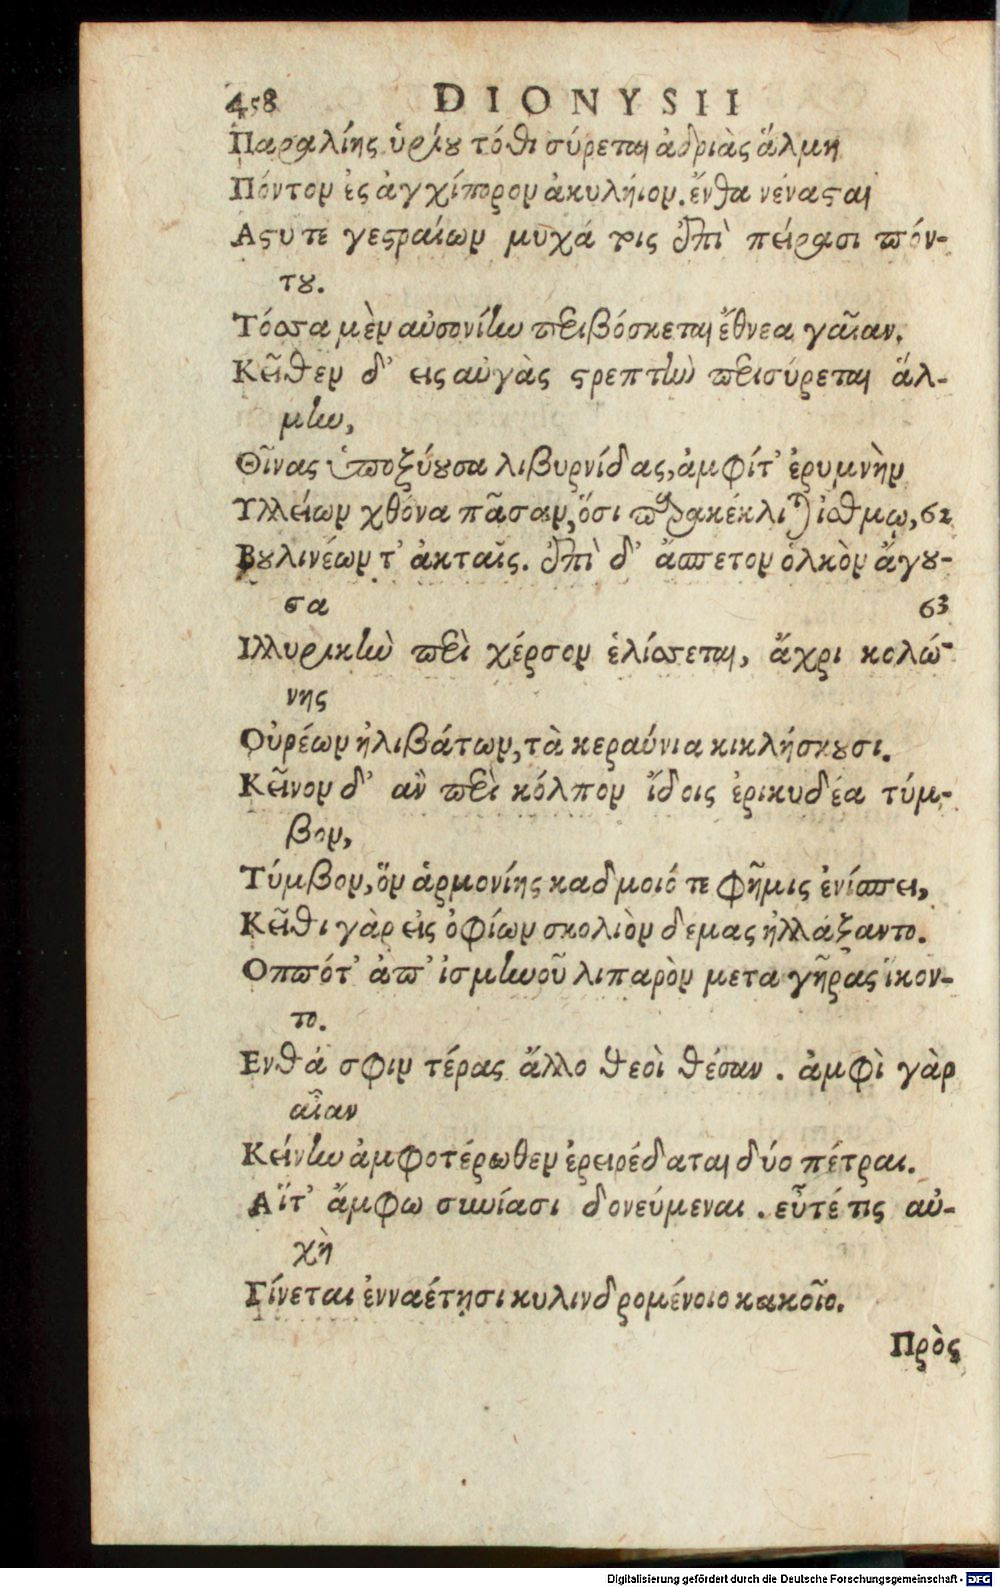 458 DIONYSII
Παραλίης ὑρίου τόθι σύρεται ἀδριὰς ἅλμη
Πόντον ἐς ἀγχίπορον ἀκυλήιον. ἔνθα νένασται
Αςυ τε γεςραίων μυχά τρις ἐπὶ πείρασι πόν-
του.
Τόσσα μὲν αὐσονίην περιβόσκεται ἔθνεα γαῖαν.
Κεῖθεν δ’ εις αὐγὰς ςρεπτὴν περισύρεται ἅλ-
μην,
Θῖνας ὑποξύουσα λιβυρνίδας, ἀμφίτ’ ἐρυμνὴν
Υλλείων χθόνα πᾶσαν, ὅσι παρακέκλιται ἰσθμῳ, 62
Βουλινέων τ’ ἀκταῖς. ἐπὶ δ’ ἄσπετον ὁλκὸν ἄγου-
σα 63
Ιλλυρικὴν περὶ χέρσον ἑλίσσεται, ἄχρι κολώ-
νης
Οὐρέων ἠλιβάτων, τὰ κεραύνια κικλήσκουσι.
Κεῖνον δ’ ἂν περὶ κόλπον ἴδοις ἐρικυδέα τύμ-
βον,
Τύμβον, ὃν ἁρμονίης καδμοιό τε φῆμις ἐνίσπει,
Κεῖθι γὰρ εἰς ὀφίων σκολιὸν δεμας ἠλλάξαντο.
Οππότ’ ἀπ’ ἰσμηνοῦ λιπαρὸν μετα γῆρας ἵκον-
το.
Ενθά σφιν τέρας ἄλλο θεοὶ θέσαν. ἀμφὶ γὰρ
αἶαν
Κείνην ἀμφοτέρωθεν ἐρειρέδαται δύο πέτραι.
Αἵτ’ ἄμφω συνίασι δονεύμεναι. εὖτέ τις αὐ-
χὴ
Γίνεται ἐνναέτησι κυλινδρομένοιο κακοῖο.
Πρὸς
Digitalisierung gefördert durch die Deutsche Forschungsgemeinschaft - DFG